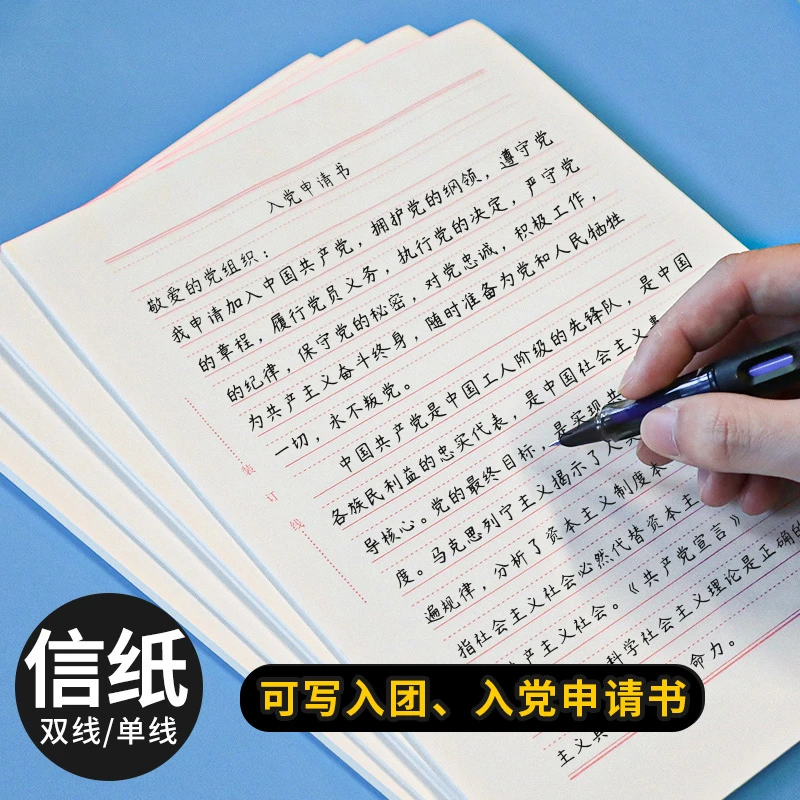 入党申请书
敬爱的党组织：
我申请加入中国共产党，拥护党的纲领，遵守党
的章程，履行党员义务，执行党的决定，严守党
的纪律，保守党的秘密，对党忠诚，积极工作，
为共产主义奋斗终身，随时准备为党和人民牺牲
一切，永不叛党。
中国共产党是中国工人阶级的先锋队，是中国
各族民利益的忠实代表，是中国社会主义事
导核心。党的最终目标，是实现共
度。马克思列宁主义揭示了人类
遍规律，分析了资本主义制度本
指社会主义社会必然代替资本主
产主义社会。《共产党宣言》
科学社会主义理论是正确的
命力。
主义
装订线
信纸
双线/单线
可写入团、入党申请书